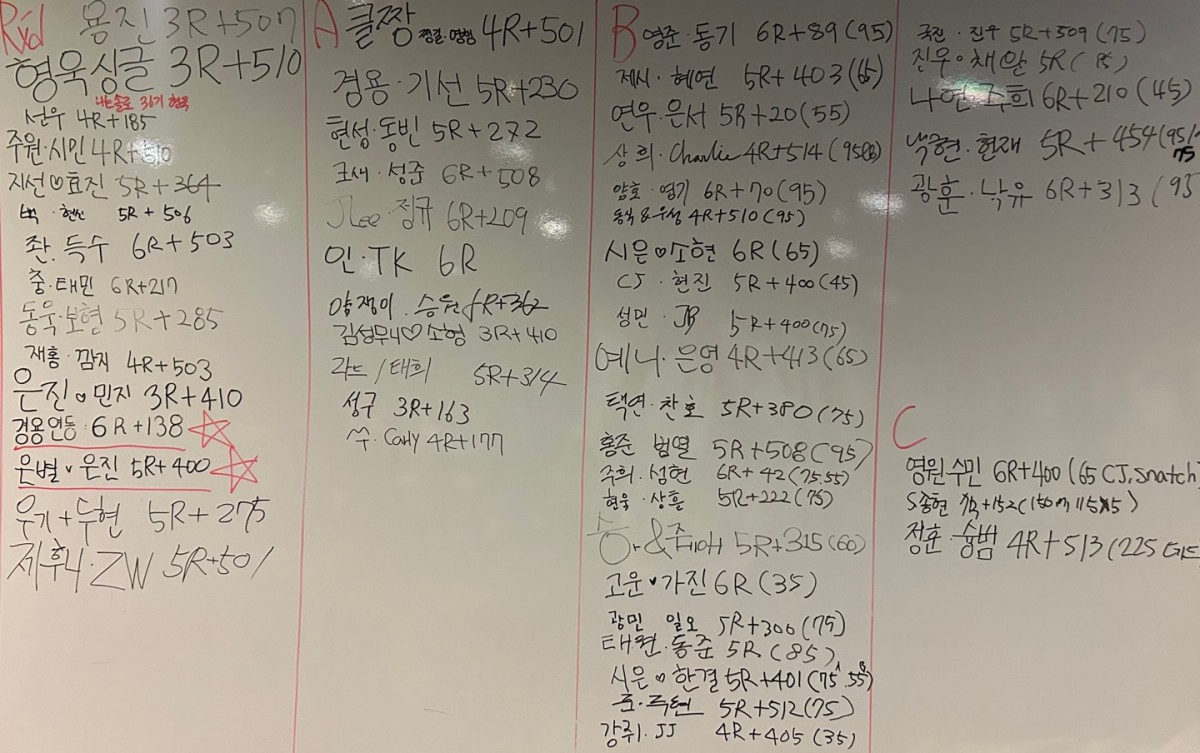 Rxd
용진 3R+507
형욱싱글 3R+510
나는솔로 31기 형욱
선우 4R+185
주원·시민 4R+510
지선♡효진 5R+364
벽·현신 5R+506
좐·득수 6R+503
중·태민 6R+217
동욱·보현 5R+285
재홍·깜지 4R+503
은진♥민지 3R+410
경용연동·6R+138
은별♥은진 5R+400
우기+두현 5R+275
제후니·ZW 5R+501
A
클짱 4R+501
경용·기선 5R+230
현성·동빈 5R+272
크새·성준 6R+508
JLee·정규 6R+209
인·TK 6R
양쟁이·승원 R+362
김성무니♡소형 3R+410
라드/태희 5R+314
성구 3R+163
쑤·Carly 4R+177
B
영준·동기 6R+89(95)
제시·혜연 5R+403(65)
연우·은서 5R+20(55)
상희·Charlie 4R+514
암호·영기 6R+70(95)
동식&우성 4R+510(95)
시은♡소현 6R(65)
CJ·현진 5R+400(45)
성민·JB 5R+400(75)
예니·은영 4R+413(65)
택연·찬호 5R+380(75)
홍준 범열 5R+508(95)
주희·성현 6R+42(75.55)
현욱·상흠 5R+222(75)
5R+315(60)
고운♥가진 6R(35)
광민 일오 5R+306(75)
태원·동준 5R(85)
시은♥한결 5R+401(75.55)
5R+512(75)
강쥐·JJ 4R+405(35)
국진·진우 5R+509(75)
진우·채완 5R
나연·주희 6R+210(45)
낙현·현재 5R+454(95/75
광훈·낙유 6R+313(95
C
영원·수민 6R+400(65 CJ, Snatch)
S종현
정훈·슝범 4R+513(225